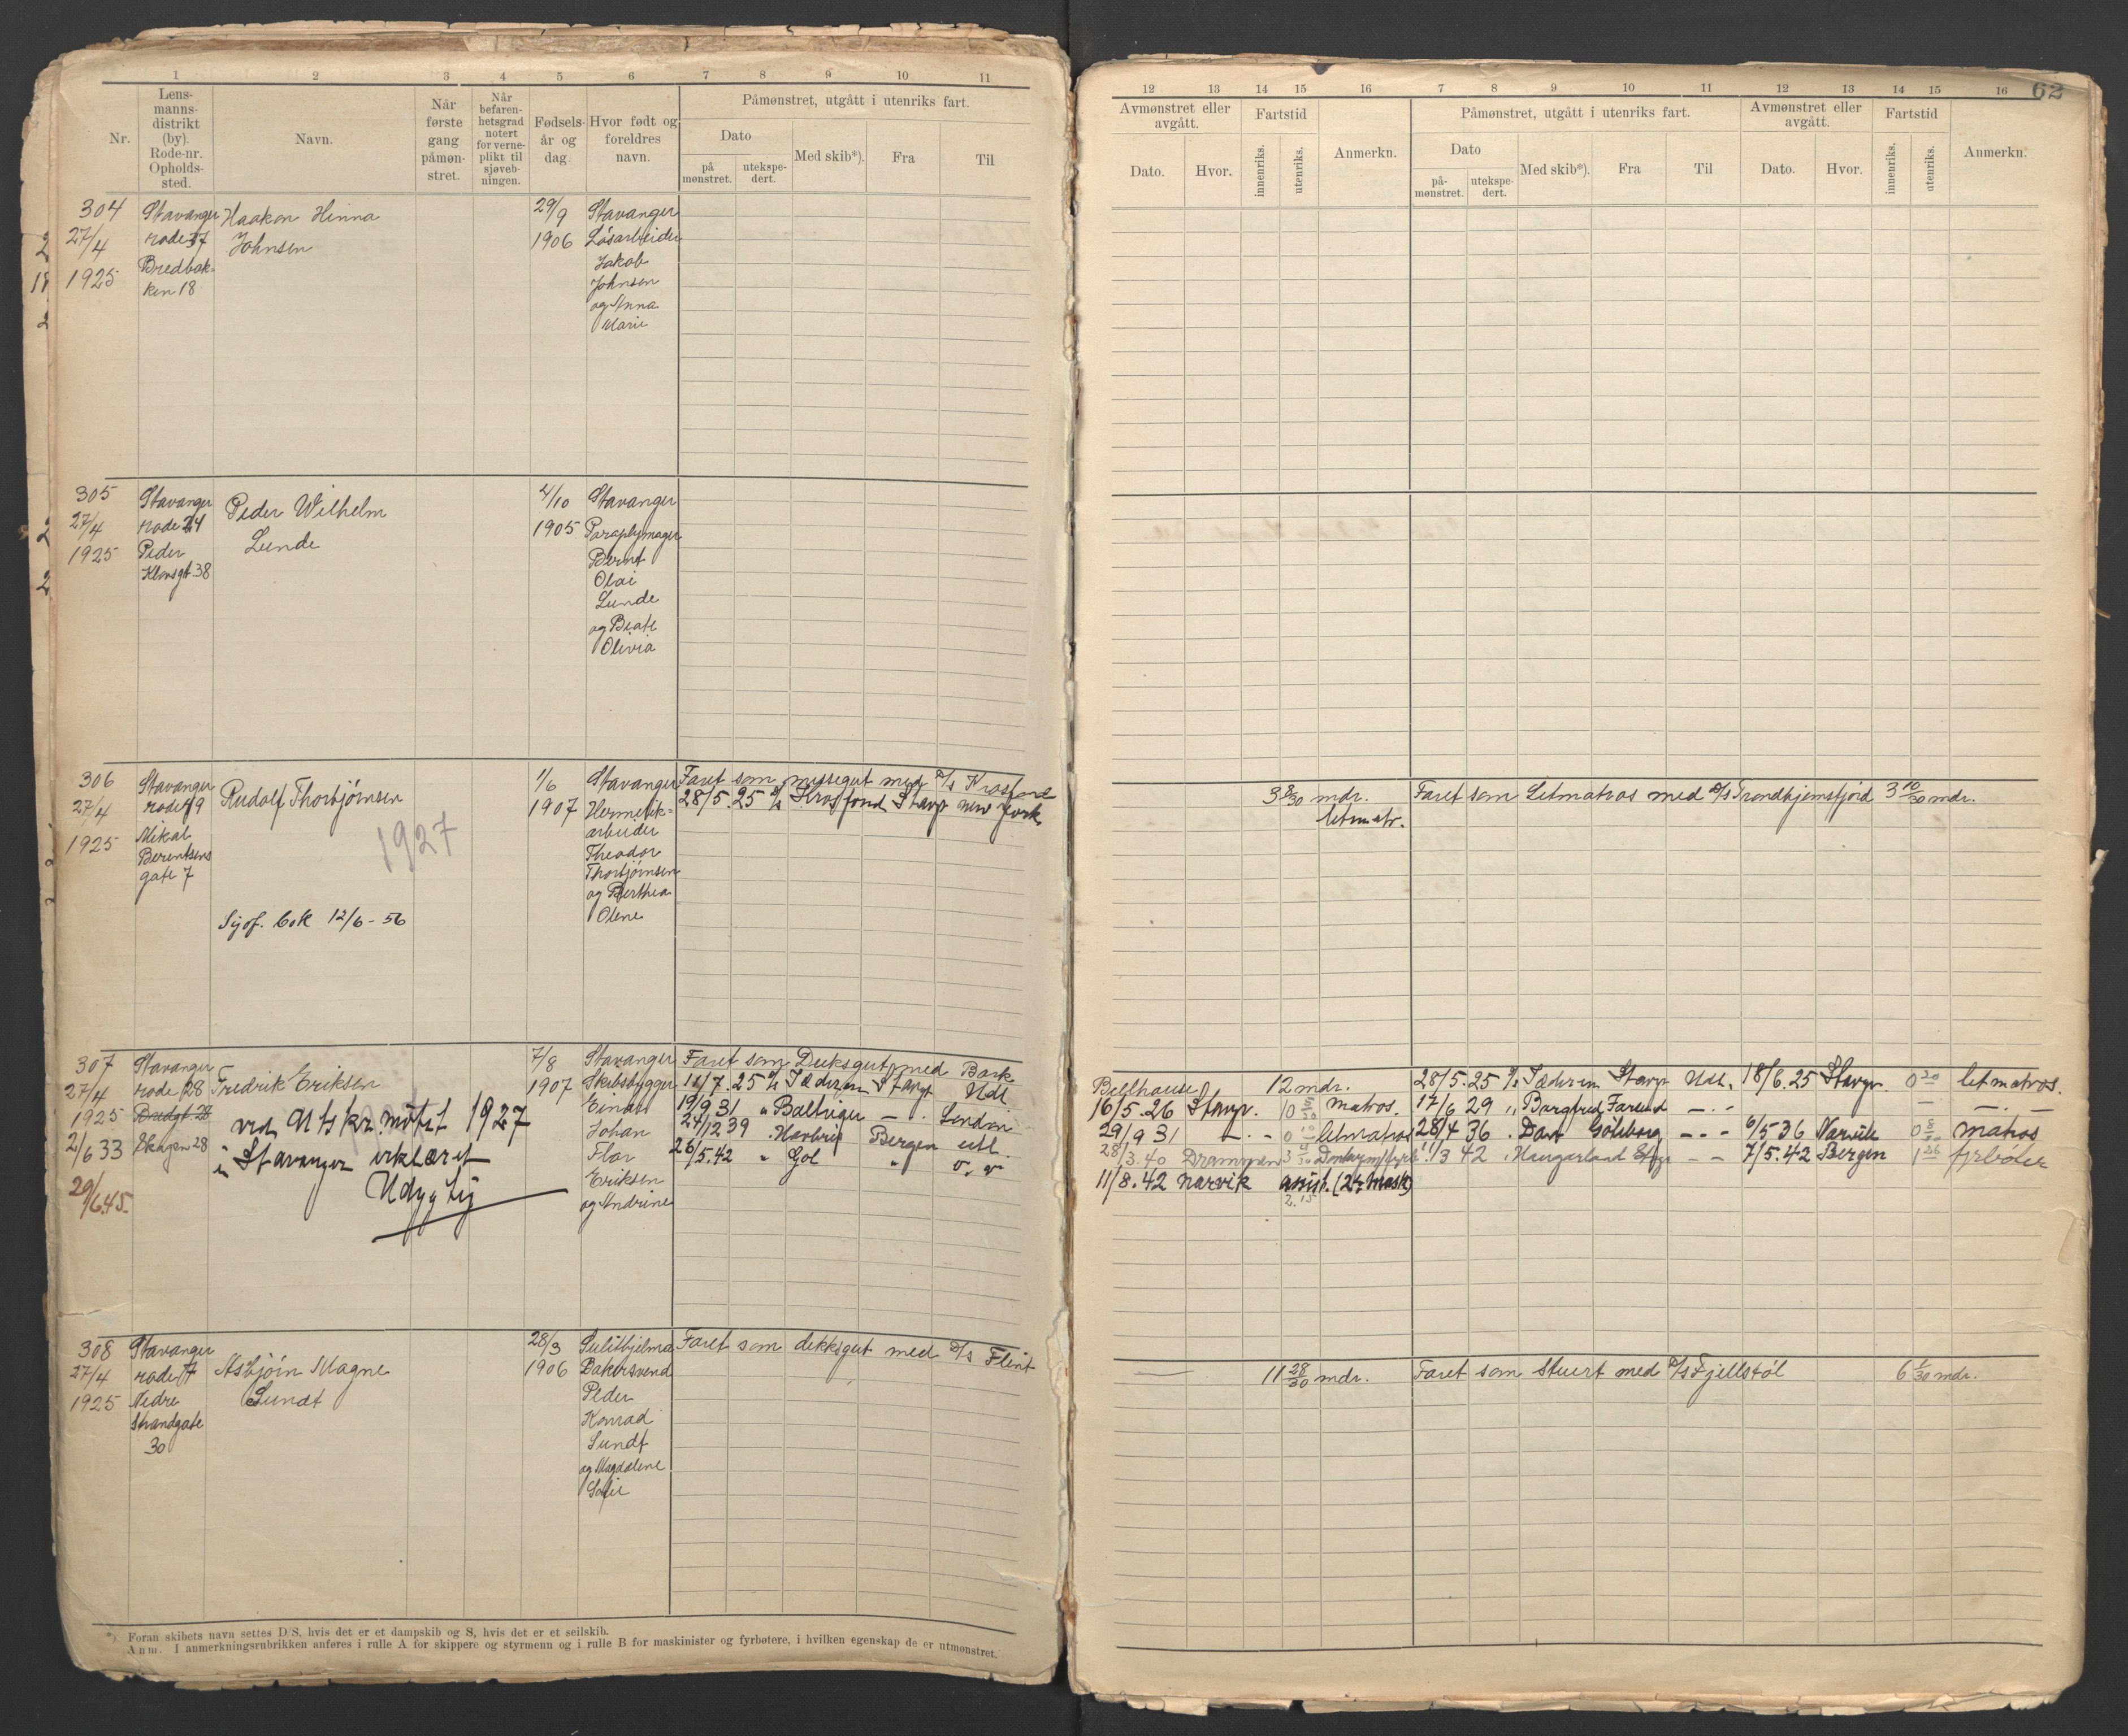 1 2 3 4 5 6 7 8 9 10 11
Nr.
Lens-
manns-
distrikt
(by).
Rode-nr.
Opholds-
sted.
Navn.
Når
første
gang
påmøn-
stret.
Når
befaren-
hetsgrad
notert
for verne-
plikt til
sjøveb-
ningen.
Fødsels-
år og
dag.
Hvor født og
foreldres
navn.
Påmønstret, utgått i utenriks fart.
Dato
på
mønstret.
utekspe-
dert.
Med skib*).
Fra
Til
304
27/4
1925
Stavanger
rode 37
Bredbak-
ken 18
Haakon Hinna
Johnsen
29/9
1906
Stavanger
Løsarbeider
Jakob
Johnsen
og Anna
Marie
305
27/4
1925
Stavanger
rode 24
Peder
Klowsgt 38
Peder Wilhelm
Lunde
4/10
1905
Stavanger
Paraplymager
Bernt
Olai
Lunde
og Beate
Olivia
306
27/4
1925
Stavanger
rode 19
Mikal
Berentsens
gate 7
Rudolf Thorbjørnsen
1927
Sjøf. bok 12/6-56
1/6
1907
Stavanger
Hermetik-
arbeider
Theodor
Thorbjørnsen
og Berthea
Oline
Faret som messegut med D/s Krosfond
28/5.25 D/s Krosfond Stavgr New York
307
27/4
1925
2/6 33
29/6.45.
Stavanger
rode 28
Bredgt 28
Skagen 28
Fredrik Eriksen
ved utskr. møtet 1927
i Stavanger erklæret
Udygtig
7/8
1907
Stavanger
Skibsbygger
Einar
Johan
Flor
Eriksen
og Andrine
Faret som Deksgut med Bark
11/7.25 D/s Jæderen Stavgr Udl
19/9 31 " Baltriger - . London
24/12 39 . Havbris Bergen utl.
26/5.42 " Gol " v. v
308
27/4
1925
Stavanger
rode 7
Nedre
Strandgate
30
Asbjørn Magne
Lundt
28/3
1906
Sulithjelma
Bakersvend
Peder
Konrad
Lundt
og Magdalene
Sofie
Faret som dekksgut med D/s Flint
*) Foran skibets navn settes D/S, hvis det er et dampskib og S, hvis det er et seilskib.
Anm. I anmerkningsrubrikken anføres i rulle A for skippere og styrmenn og i rulle B for maskinister og fyrbøtere, i hvilken egenskap de er utmønstret.
62
12 13 14 15 16 7 8 9 10 11 12 13 14 15 16
Avmønstret eller
avgått.
Dato.
Hvor.
Fartstid
innenriks.
utenriks.
Anmerkn.
Påmønstret, utgått i utenriks fart.
Dato
på-
mønstret.
utekspe-
dert.
Med skib*).
Fra
Til
Avmønstret eller
avgått.
Dato.
Hvor.
Fartstid
innenriks.
utenriks.
Anmerkn.
3 8/30 mdr. Faret som Letmatros med D/s Trondhjemsfjord 3 10/30 mdr.
letmatr.
Bellhouse 12 mdr. 28/5.25 D/s Jæderen Stavgr Udl. 18/6.25 Stavgr. 0 20 letmatros.
16/5.26 Stavgr. 10 5/30 matros. 17/6 29 " Borgfred Farsund - . -
29/9 31 - . - letmatros 28/4 36 . Göteborg - - - 6/5 36 Narvik matros
28/3.40 Drammen 3 11/3 42 . Haugarland - - 7/5.42 Bergen 1 26 fyrbøter
11/8.42 Narvik assist. (2dr mask)
2.15
11 28/30 mdr. Faret som Stuert med D/s Fjellstøl 6 1/30 mdr.